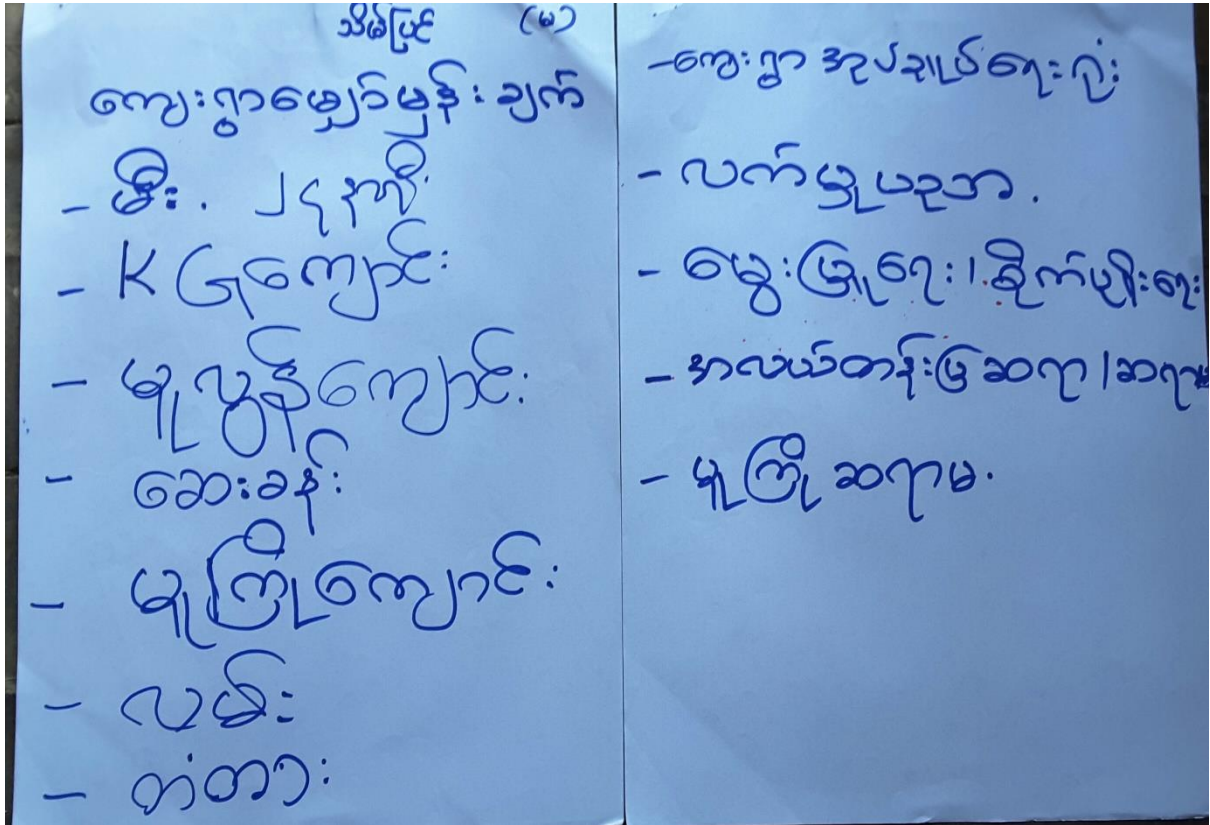 သိမ်ပြင် (မ)
ကျေးရွာမျှော်မှန်းချက်
- မီး. ၂၄ နာရီ
- KG ကျောင်း
- မူလွန်ကျောင်း
- ဆေးခန်း
- မူကြိုကျောင်း
- လမ်း
- တံတား
- ကျေးရွာ အုပ်ချုပ်ရေးရုံး
- လက်မှုပညာ.
- မွေးမြူရေး/စိုက်ပျိုးရေး
- အလယ်တန်းပြဆရာ/ဆရာမ
- မူကြိုဆရာမ.